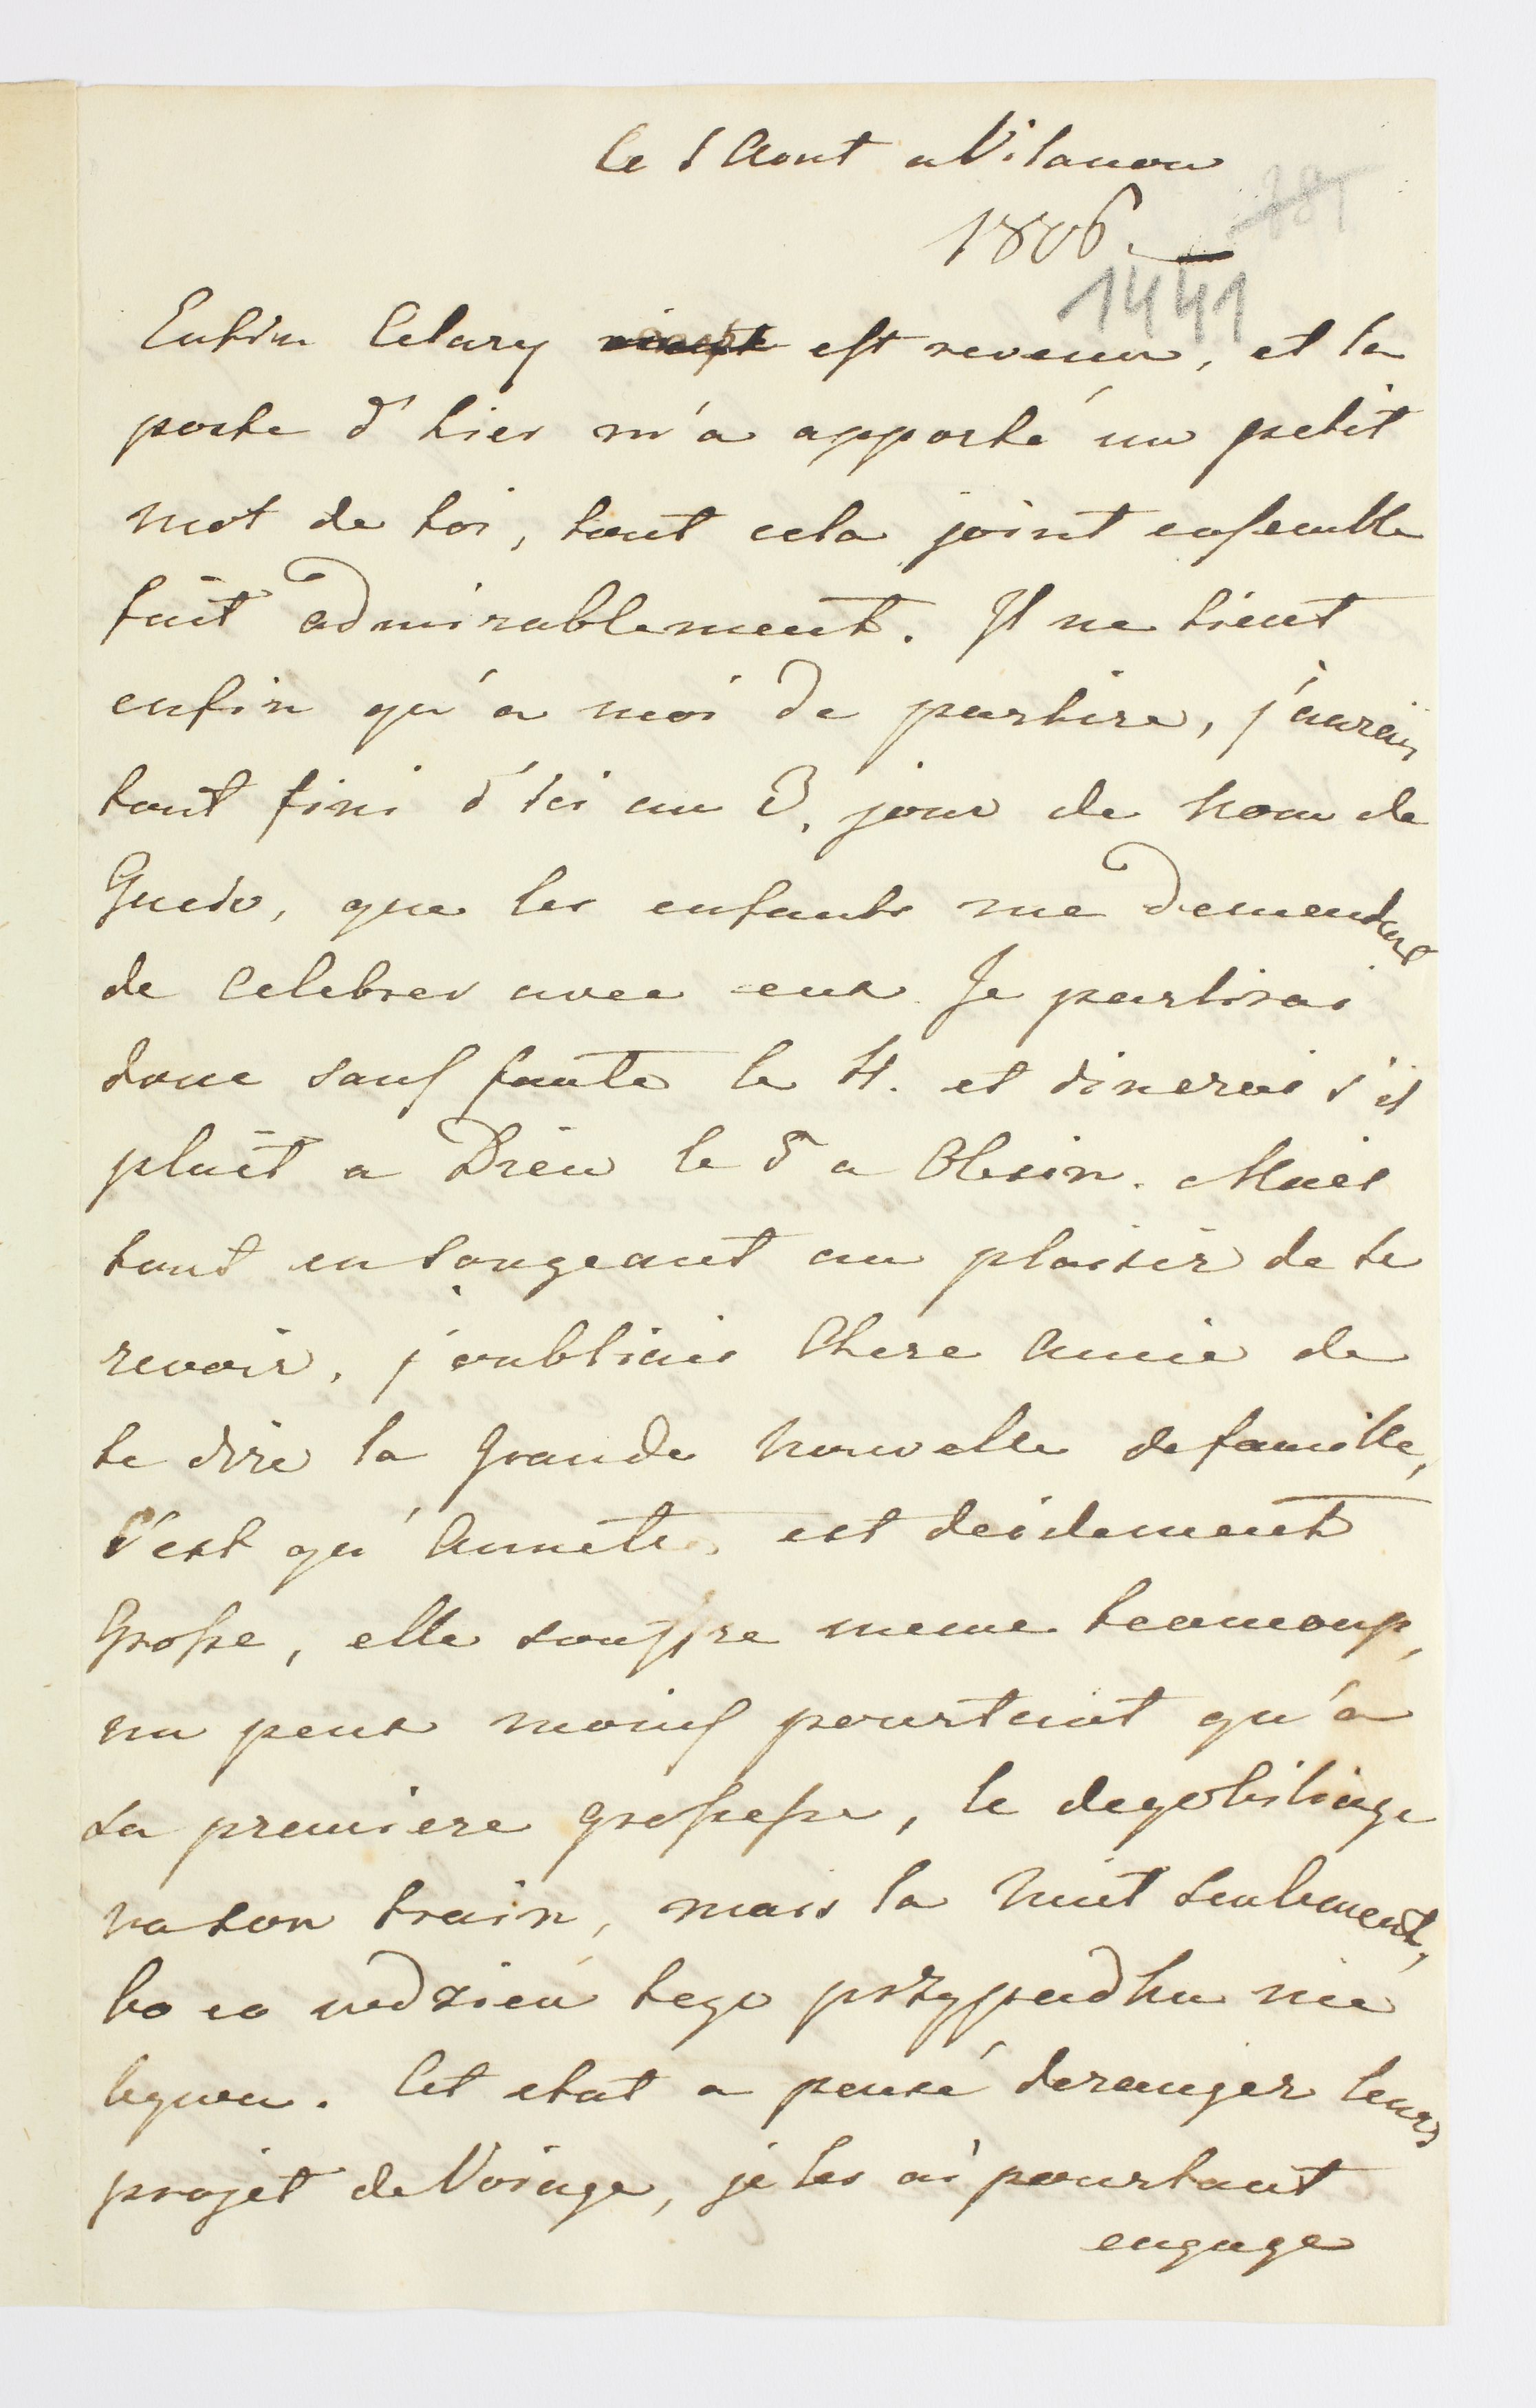 le 1 Aout a Vilanow
1806.
1441
Enfin Celary est revenu, et la
poste d'hier m'a apporté un petit
mot de toi, tout cela joint ensemble
fait admirablement. Il ne tient
enfin qu'a moi de partire, j'aurais
tout fini d'ici au 3. jour de nom de
Gucio, que les enfants me demandent
de celebrer avec eux. Je partirai
donc sauf faute le 4. et dinerai s'il
plait a Dieu le 5 a Olesin. Mais
tout en songeant au plaisir de te
revoir, j'oubliais Chere Amie de
te dire la grande Nouvelle de famille,
c'est qu'Annete est decidement
Grosse, elle souffre meme beaucoup,
un peux moins pourtant qu'a
sa premiere grossesse, le degobiliage
va son train, mais la Nuit seulement,
bo co wdzień tego przypadku nie
bywa. Cet etat a pensé deranger leurs
projet de Voiage, je les ai pourtant
engage